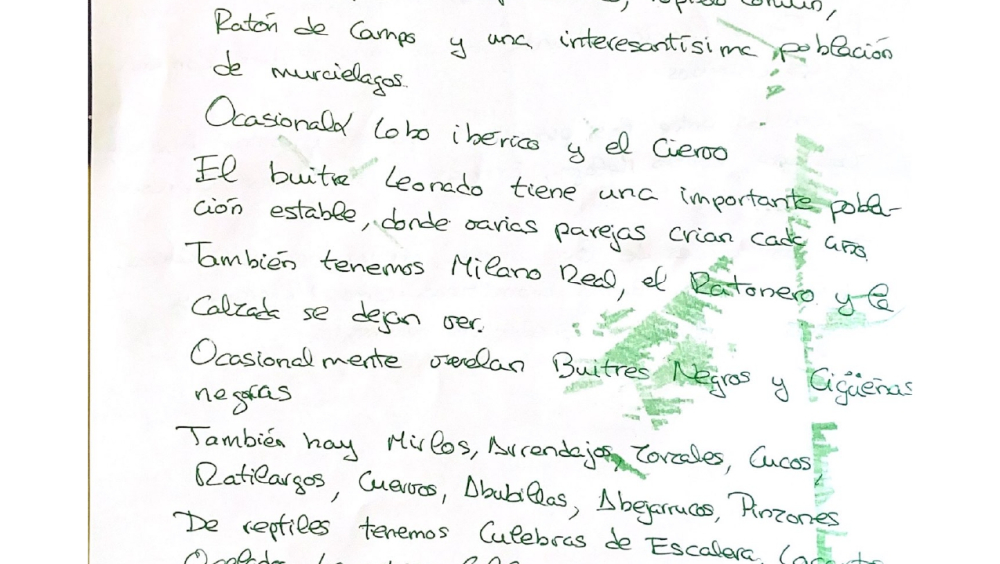 Ratón de Campo y una interesantísima población
de murcielagos.
Ocasional Lobo ibérico y el Ciervo
El buitre Leonado tiene una importante pobla-
ción estable, donde varias parejas crian cada año.
También tenemos Milano Real, el Ratonero y la
Calzada se dejan ver.
Ocasionalmente vuelan Buitres Negros y Cigüeñas
negras
También hay Mirlos, Arrendajos, Zorzales, Cucos,
Ratilargos, Cuervos, Abubillas, Abejarrucos, Pinzones
De reptiles tenemos Culebras de Escalera,